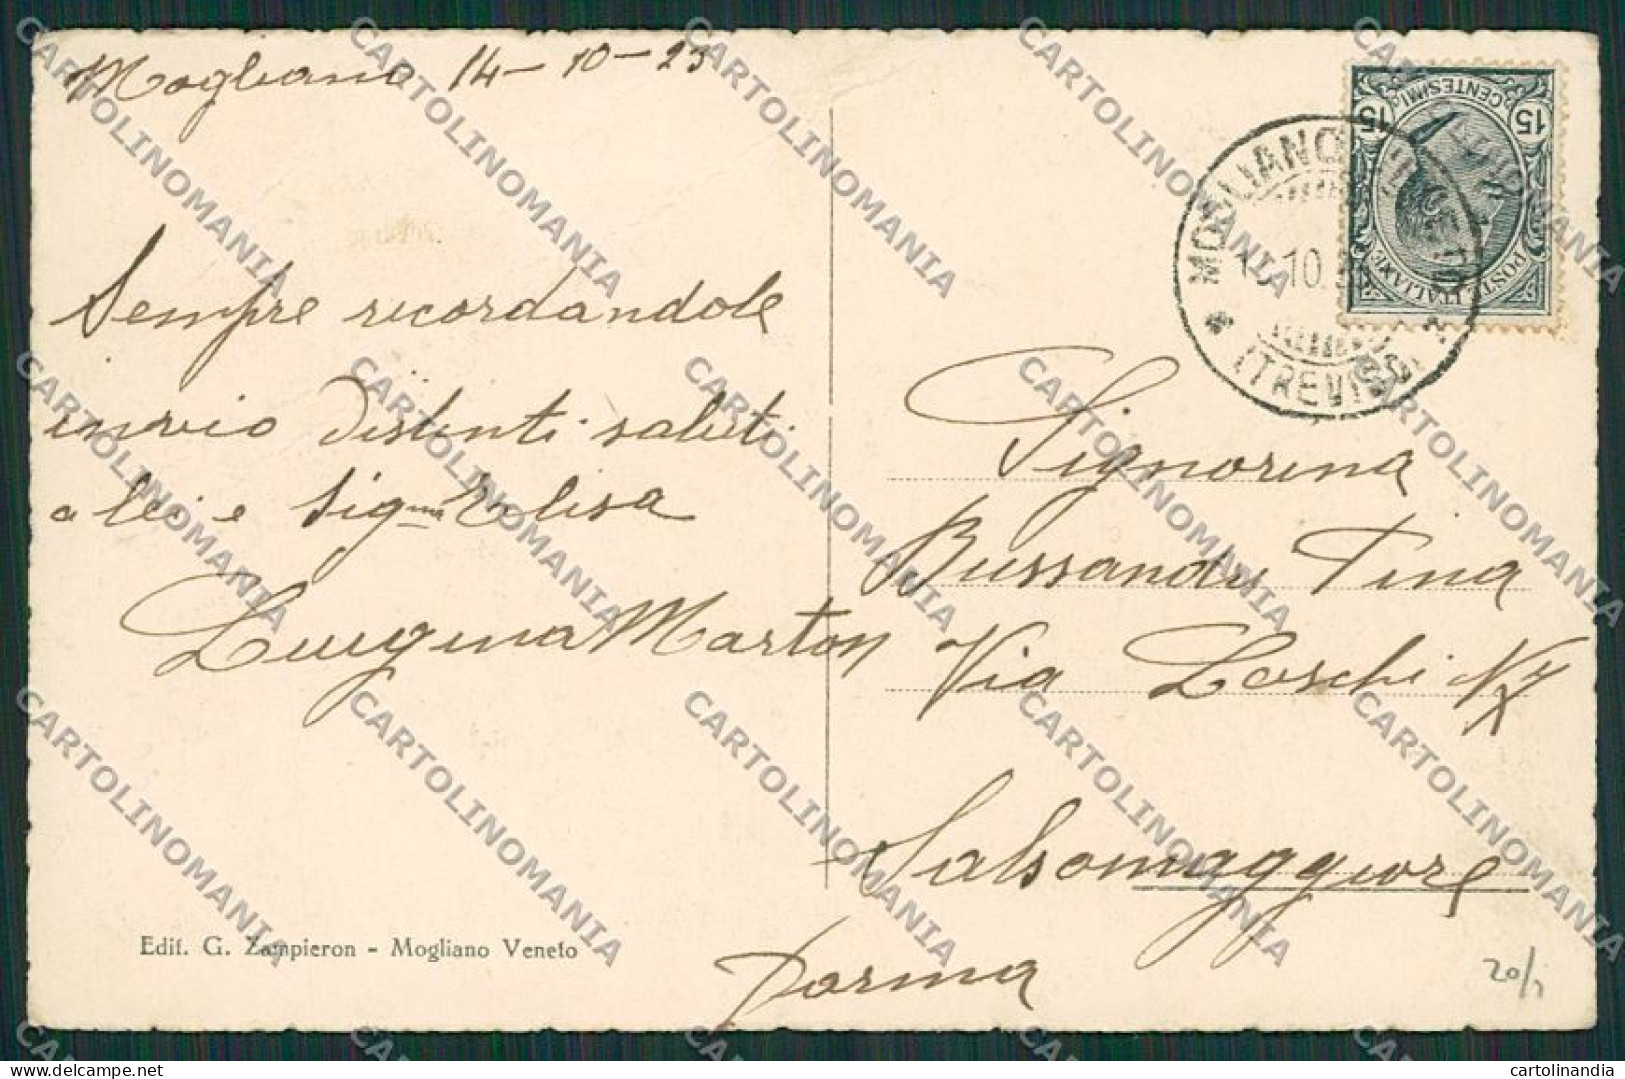 Mogliano 14-10-23
Sempre ricordandole
invio distinti saluti
a lei e Sig.na Elisa
Luigina Marton
Edit. G. Zampieron - Mogliano Veneto
15 15
CENTESIMI
POSTE ITALIANE
MOGLIANO
10
(TREVISO)
Signorina
Bussandri Pina
Via Loschi
Salsomaggiore
Parma
20/
CARTOLINOMANIA
delcampe.net
cartolinandia